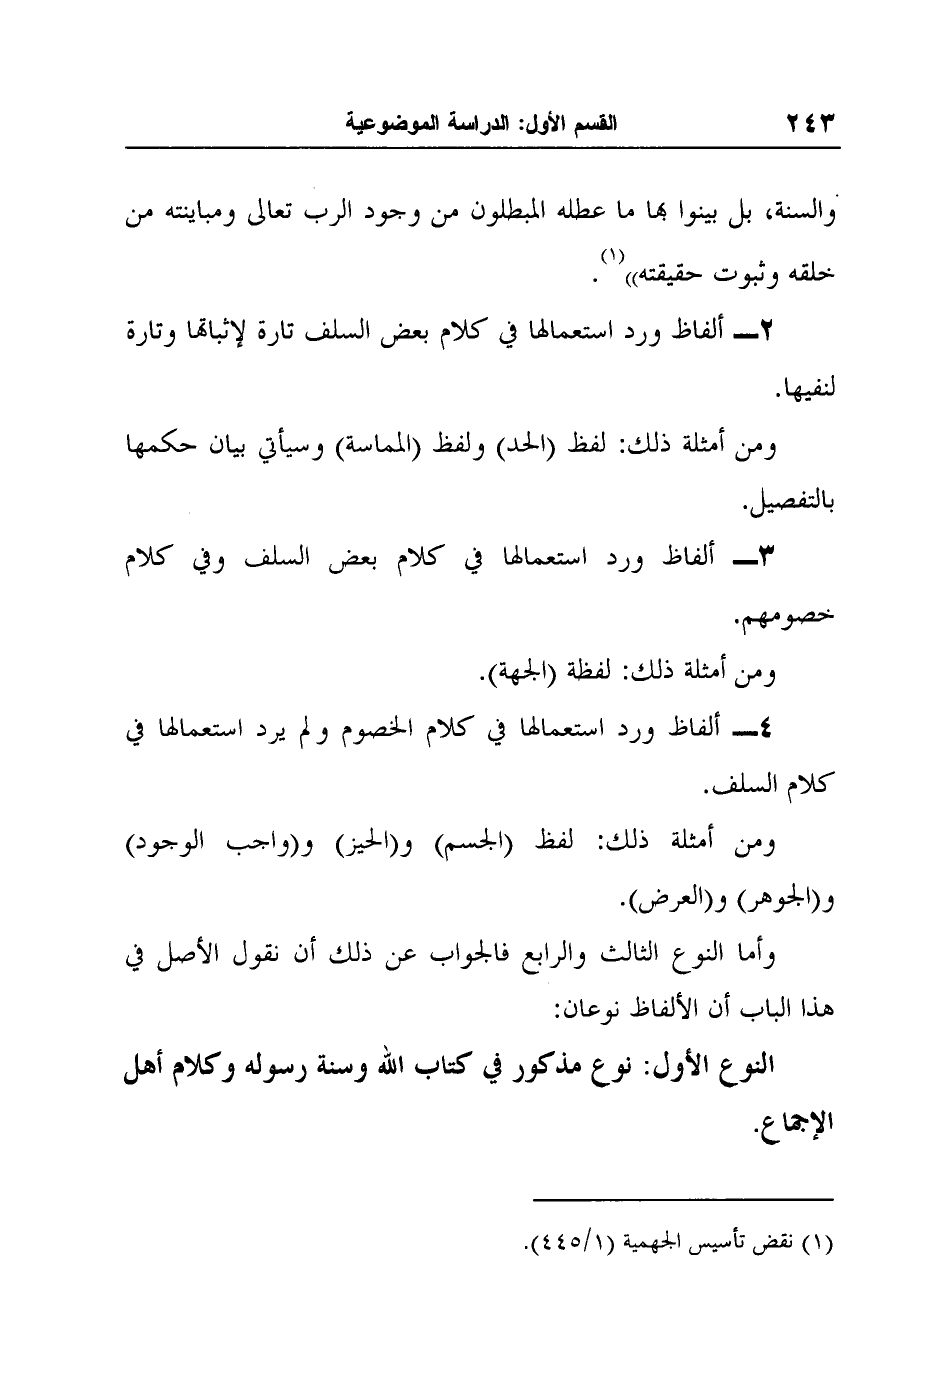 ٢٤٣ القسم الأول: الدراسة الموضوعية
والسنة، بل بينوا بها ما عطله المبطلون من وجود الرب تعالى ومباينته من
خلقه وثبوت حقيقته))(١).
٢ـ ألفاظ ورد استعمالها في كلام بعض السلف تارة لإثباتها وتارة
لنفيها.
ومن أمثلة ذلك: لفظ (الحد) ولفظ (المماسة) وسيأتي بيان حكمها
بالتفصيل.
٣ـ ألفاظ ورد استعمالها في كلام بعض السلف وفي كلام
خصومهم.
ومن أمثلة ذلك: لفظة (الجهة).
٤ـ ألفاظ ورد استعمالها في كلام الخصوم ولم يرد استعمالها في
كلام السلف.
ومن أمثلة ذلك: لفظ (الجسم) و(الحيز) و(واجب الوجود)
و(الجوهر) و(العرض).
وأما النوع الثالث والرابع فالجواب عن ذلك أن نقول الأصل في
هذا الباب أن الألفاظ نوعان:
النوع الأول: نوع مذكور في كتاب الله وسنة رسوله وكلام أهل
الإجماع.
(١) نقض تأسيس الجهمية (٤٤٥/١).